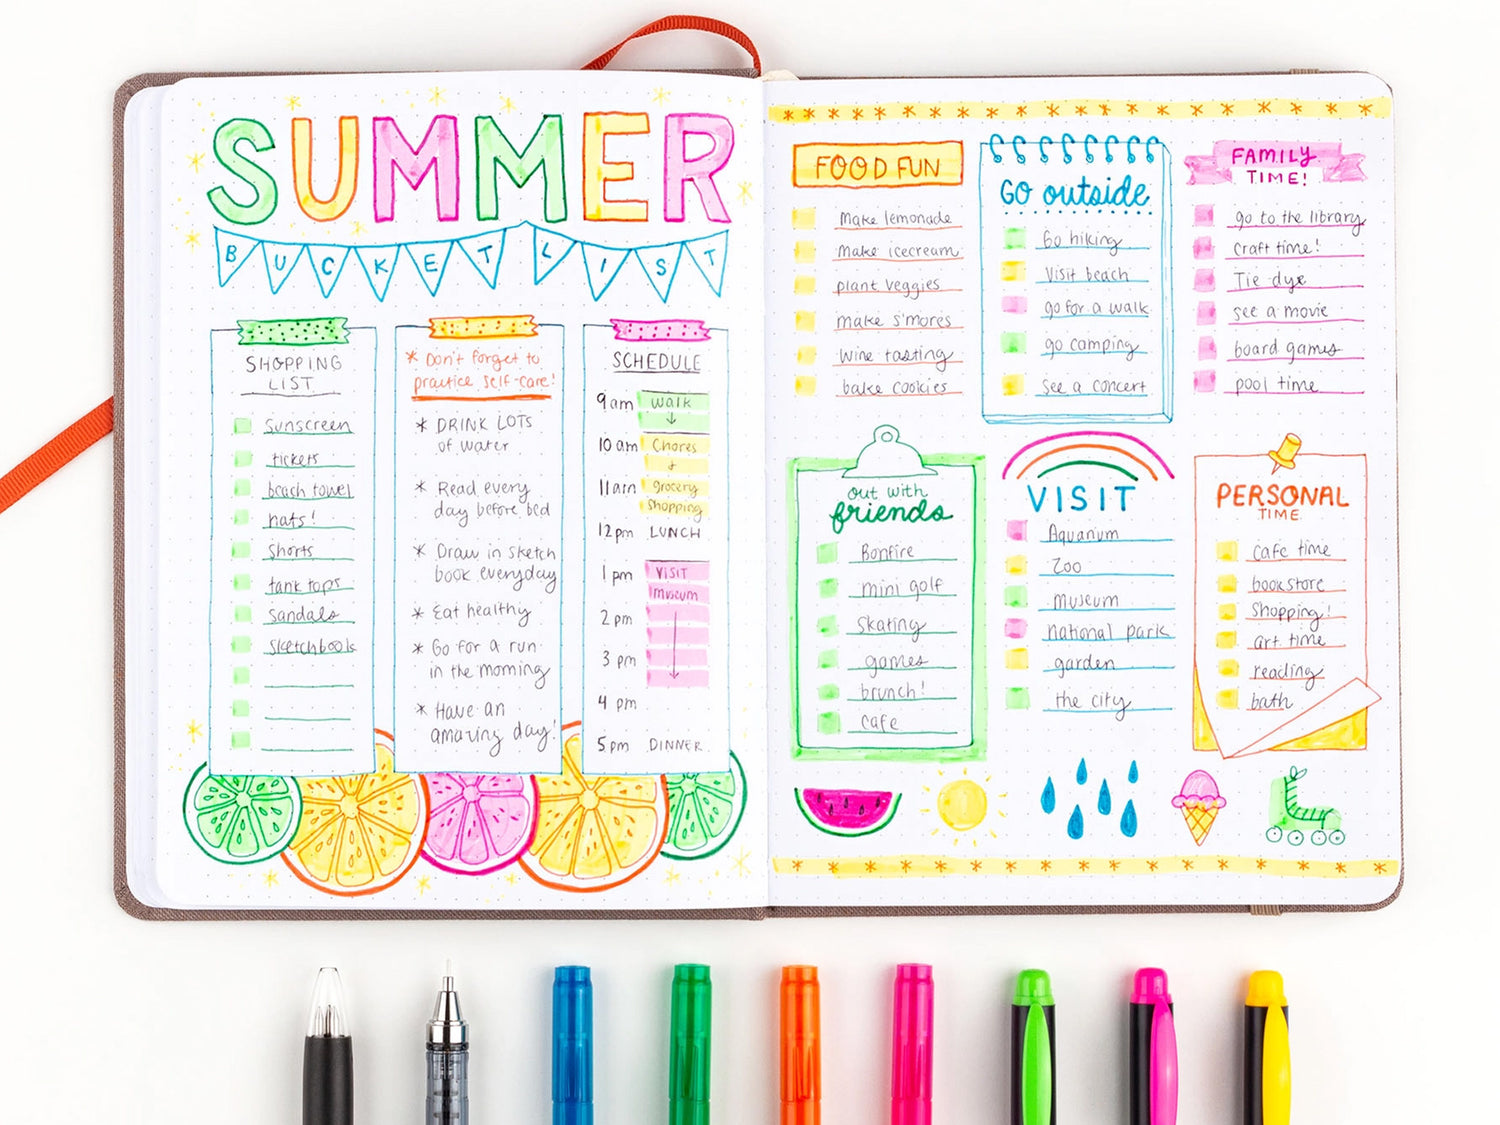 SUMMER
BUCKET LIST
SHOPPING
LIST
Sunscreen
tickets
beach towel
hats!
Shorts
tank tops
Sandals
sketchbook
* Don't forget to
practice self-care!
* DRINK LOTS
of water
* Read every
day before bed
* Draw in sketch
book everyday
* Eat healthy
* Go for a run
in the morning
* Have an
amazing day!
SCHEDULE
9am WALK
10am Chores
+
11am grocery
shopping
12pm LUNCH
1pm VISIT
museum
2pm
3pm
4pm
5pm DINNER
FOOD FUN
Make lemonade
Make icecream
plant veggies
make s'mores
Wine tasting
bake cookies
GO outside
Go hiking
Visit beach
go for a walk
go camping
See a concert
FAMILY
TIME!
go to the library
craft time!
Tie dye
see a movie
board games
pool time
out with
friends
Bonfire
mini golf
Skating
games
brunch!
Cafe
VISIT
Aquarium
Zoo
Museum
national park
garden
the city
PERSONAL
TIME
cafe time
bookstore
Shopping!
art time
reading
bath